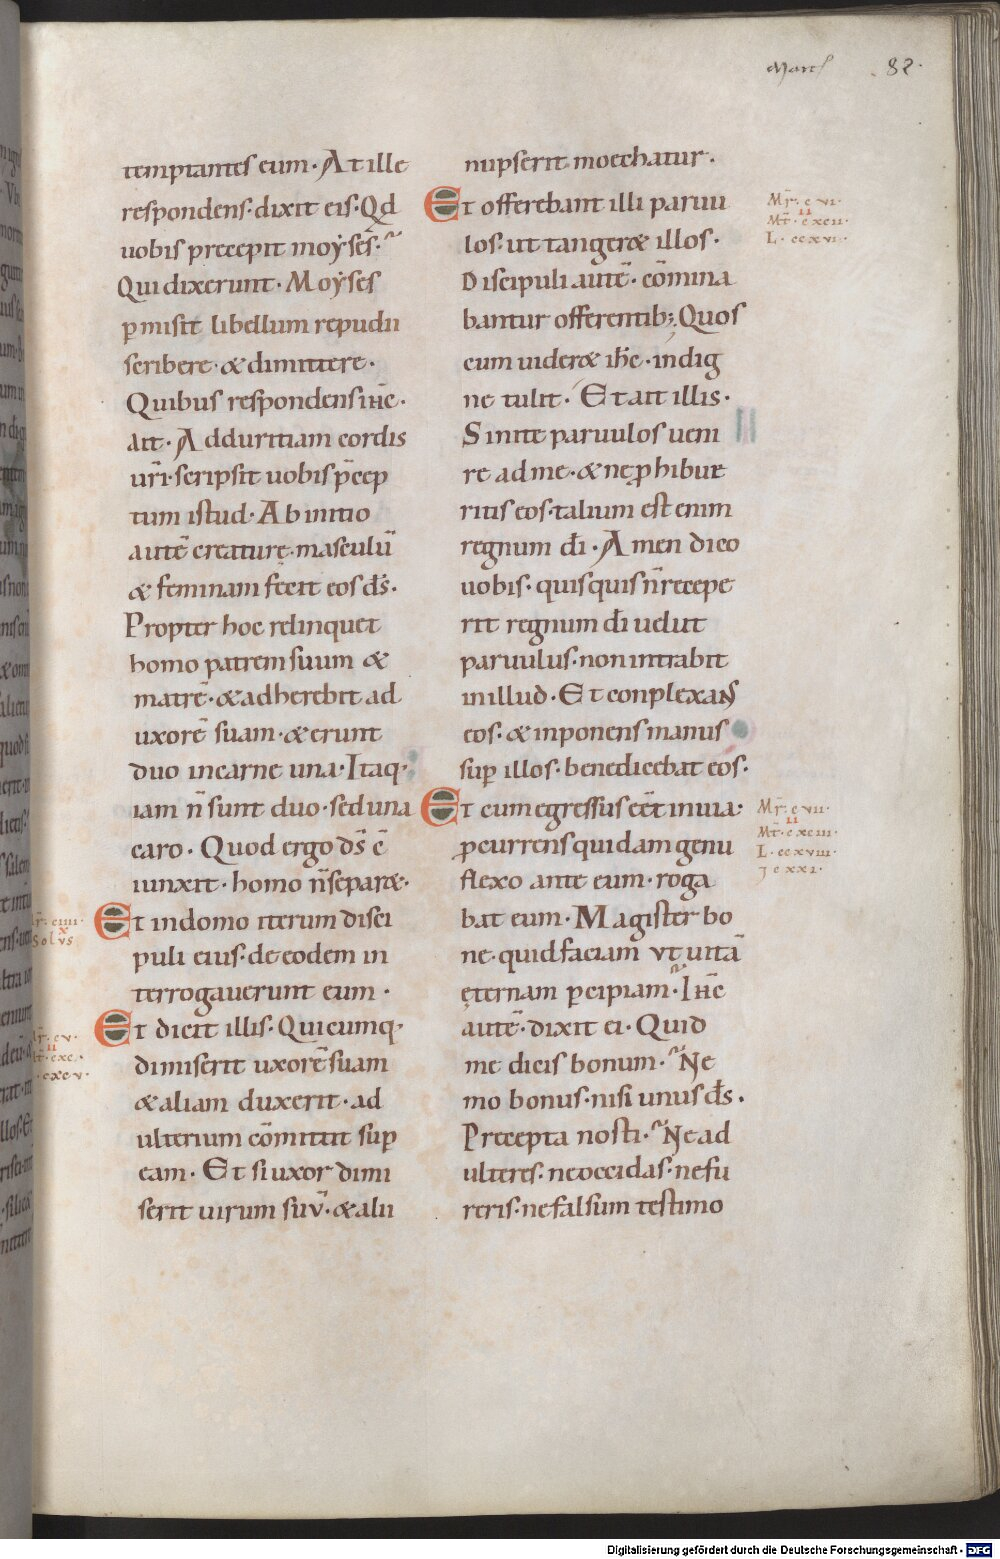 Marc
82.
temptantes eum· At ille
respondens· dixit eis· Qd
uobis precepit moẏses·
Qui dixerunt· Moẏses
ꝑmisit libellum repudii
scribere· & dimittere·
Quibus respondens ihc̄·
ait· Ad duritiam cordis
ur̄i· scripsit uobis p̄cep
tum istud· Ab initio
autē creaturę· masculū
& feminam fecit eos ds̄·
Propter hoc relinquet
homo patrem suum &
matrē· & adherebit ad
uxorē suam· & erunt
duo in carne una· Itaq·
iam n̄ sunt duo· sed una
caro· Quod ergo ds̄ c̄
iunxit· homo n̄ separ&·
Et in domo iterum disci
puli eius· de eodem in
terrogauerunt eum·
Et dicit illis· Quicumq·
dimiserit uxorē suam
& aliam duxerit· ad
ulterium cōmittit suꝑ
eam· Et si uxor dimi
serit uirum suū· & alii
nupserit moechatur·
Et offerebant illi paruu
los· ut tanger& illos·
Discipuli autē· cōmina
bantur offerentib;· Quos
cum uider& ihc̄· indig
ne tulit· Et ait illis·
Sinite paruulos ueni
re ad me· & ne ꝓhibue
ritis eos· talium est enim
regnum dī· Amen dico
uobis· quisquis n̄ recepe
rit regnum dī uelut
paruulus· non intrabit
in illud· Et conplexans
eos· & inponens manus
suꝑ illos· benedicebat eos·
Et cum egressus eēt in uia·
ꝓcurrens quidam genu
flexo ante eum· roga
bat eum· Magister bo
ne· quid faciam ut uitā
ęternam ꝑcipiam· Ihc̄
autē· dixit ei· Quid
me dicis bonum· Ne
mo bonus· nisi unus ds̄·
Precepta nosti· Ne ad
ulteres· ne occidas· ne fu
reris· ne falsum testimo
Mr̄· c vi·
II
Mt̄· cxcii·
L· ccxvi·
Mr̄· c vii·
II
Mt̄· cxciii·
L· ccxviii·
Digitalisierung gefördert durch die Deutsche Forschungsgemeinschaft - DFG